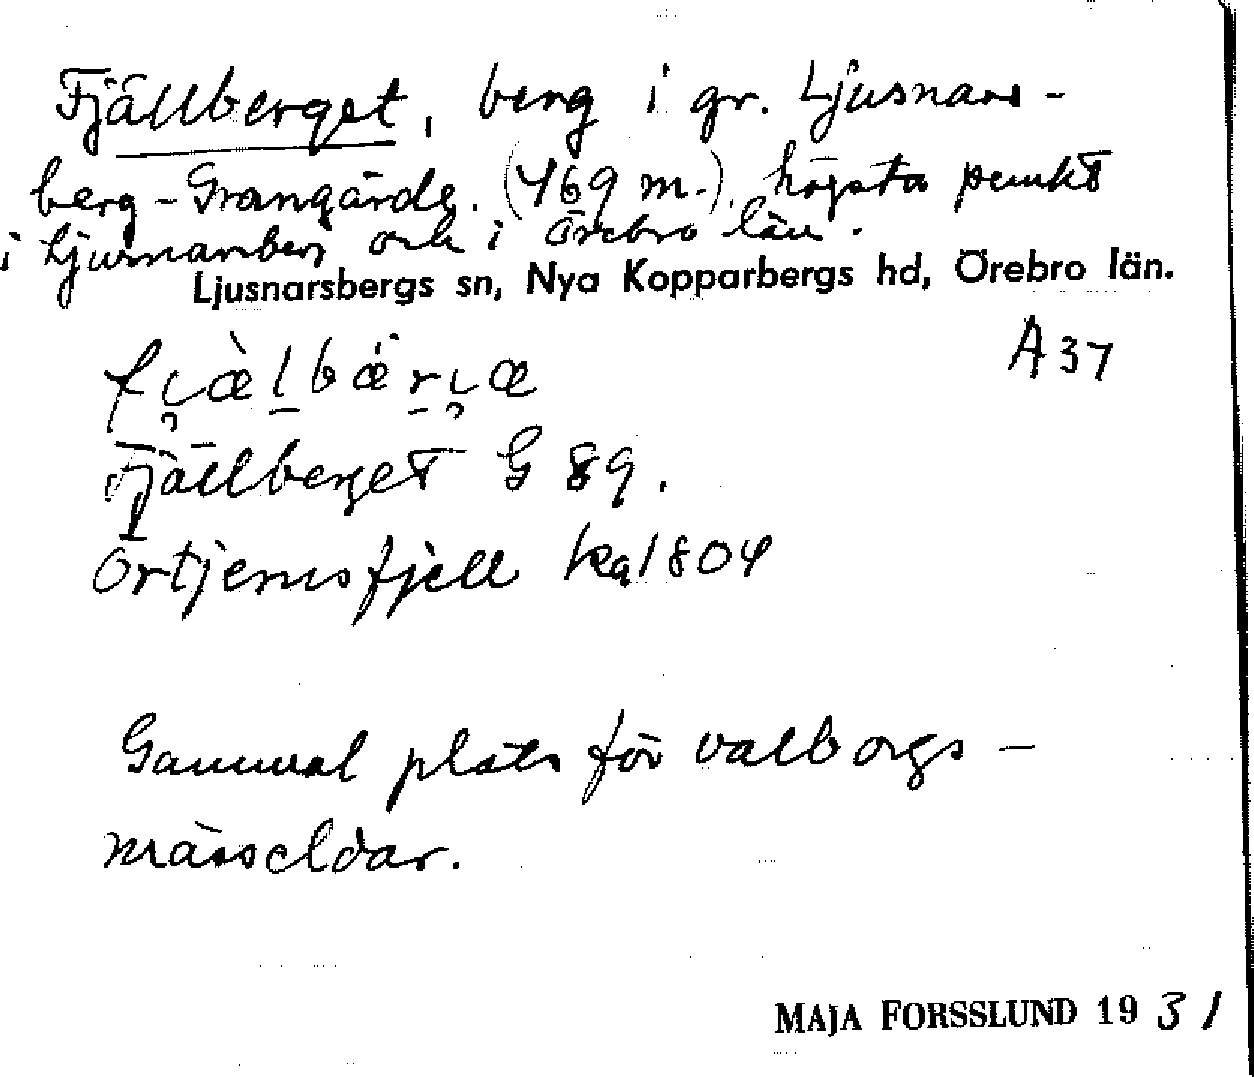 Fjällberget, berg i gr. Ljusnars-
berg-Grangärde. (469 m.), högsta punkt
i Ljusnarsberg och i Örebro län.
Ljusnarsbergs sn, Nya Kopparbergs hd, Örebro län.
A 37
Fjällberget G 89.
Örtjernsfjell ka 1804
Gammal plats för valborgs-
mässeldar.
MAJA FORSSLUND 1931